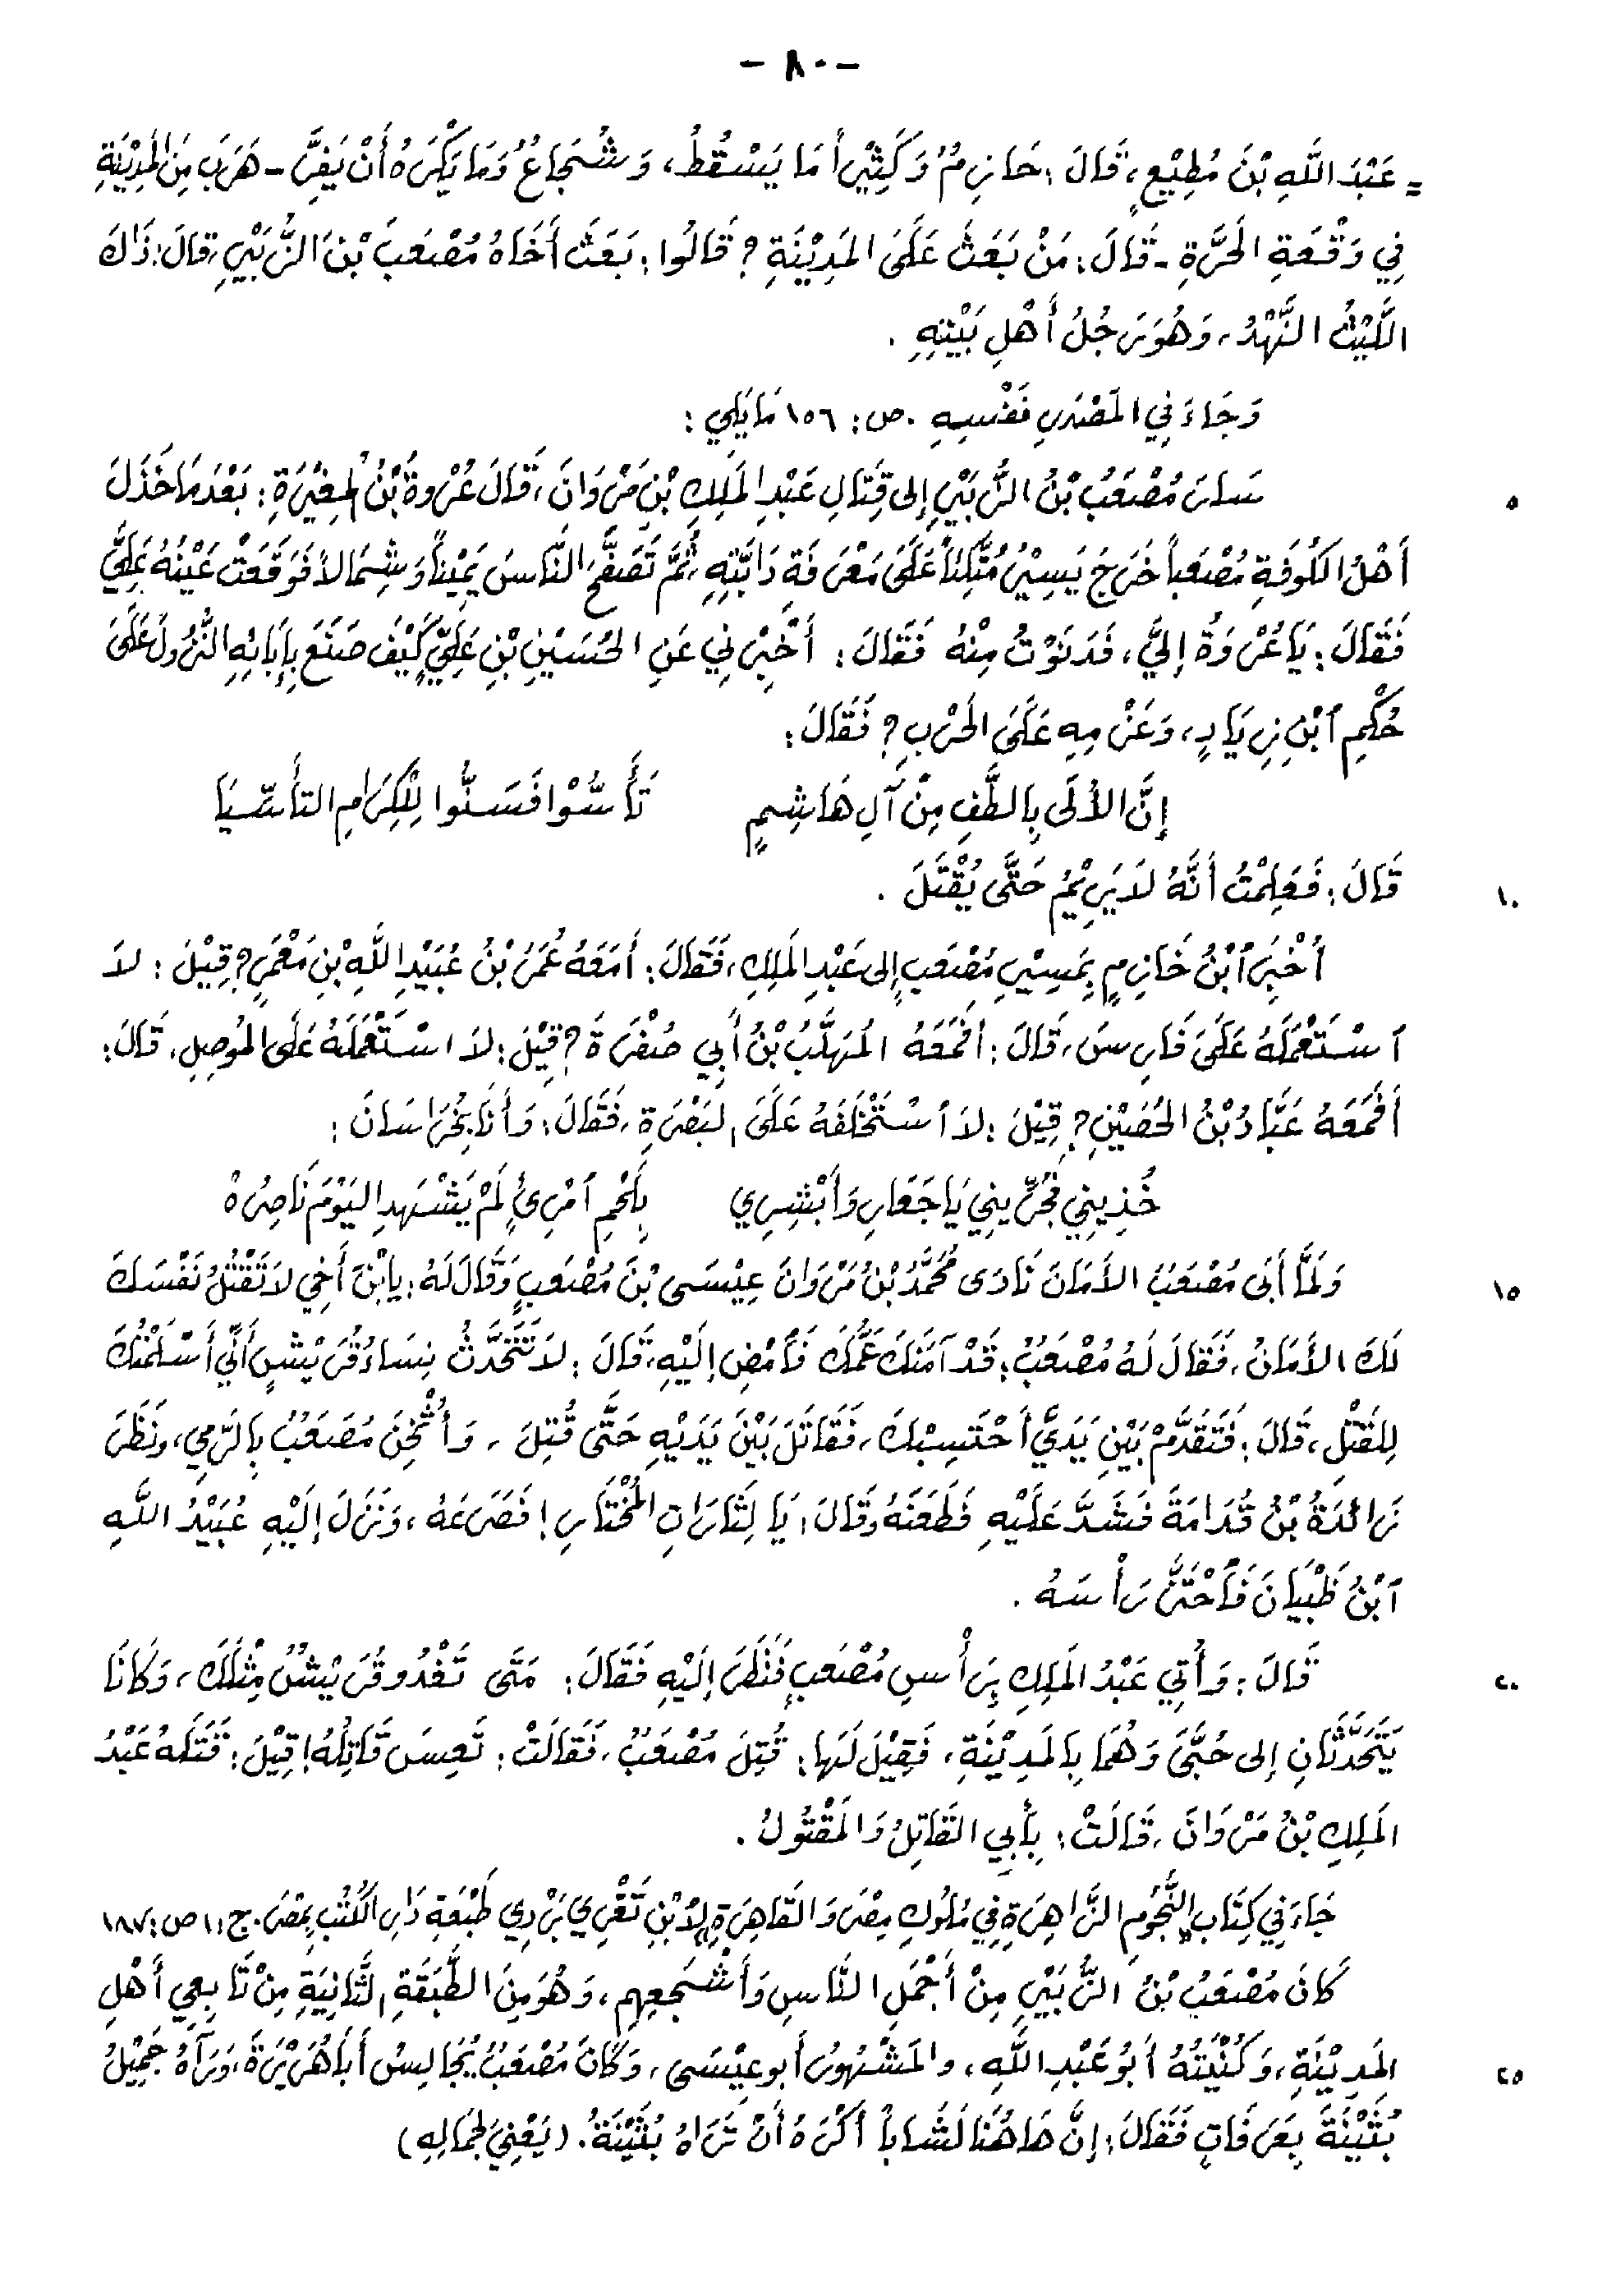 - ٨٠ -
= عَبْدَ اللَّهِ بْنَ مُطِيْعٍ، قَالَ: حَازِمٌ وَكَثِيْراً مَا يَسْقُطُ، وَشُجَاعٌ وَمَا يَكْرَهُ أَنْ يَفِرَّ - هَرَبَ مِنَ المَدِيْنَةِ
فِي وَقْعَةِ الحَرَّةِ - قَالَ: مَنْ بَعَثَ عَلَى المَدِيْنَةِ؟ قَالُوا: بَعَثَ أَخَاهُ مُصْعَبَ بْنَ الزُّبَيْرِ، قَالَ: ذَاكَ
اللَّيْثُ النَّهْدُ، وَهُوَ رَجُلُ أَهْلِ بَيْتِهِ.
وَجَاءَ فِي المَصْدَرِ نَفْسِهِ. ص: ١٥٦ مَا يَلِي:
سَارَ مُصْعَبُ بْنُ الزُّبَيْرِ إِلى قِتَالِ عَبْدِ المَلِكِ بْنِ مَرْوَانَ، قَالَ عُرْوَةُ بْنُ المُغِيْرَةِ: بَعْدَمَا خَذَلَ
٥
أَهْلُ الكُوفَةِ مُصْعَباً خَرَجَ يَسِيْرُ مُتَّكِئاً عَلَى مَعْرَفَةِ دَابَّتِهِ، ثُمَّ تَصَفَّحَ النَّاسَ يَمِيْناً وَشِمَالاً فَوَقَعَتْ عَيْنُهُ عَلَيَّ
فَقَالَ: يَا عُرْوَةُ إِلَيَّ، فَدَنَوْتُ مِنْهُ فَقَالَ: أَخْبِرْنِي عَنِ الحُسَيْنِ بْنِ عَلِيٍّ كَيْفَ صَنَعَ بِإِبَائِهِ النُّزُولَ عَلَى
حُكْمِ ٱبْنِ زِيَادٍ، وَعَزْمِهِ عَلَى الحَرْبِ؟ فَقَالَ:
إِنَّ الأُلَى بِالطَّفِّ مِنْ آلِ هَاشِمٍ تَأَسَّوْا فَسَنُّوا لِلْكِرَامِ التأسّيَا
قَالَ: فَعَلِمْتُ أَنَّهُ لاَ يَرِيْمُ حَتَّى يُقْتَلَ.
١٠
أُخْبِرَ ٱبْنُ خَازِمٍ بِمَسِيْرِ مُصْعَبٍ إِلى عَبْدِ المَلِكِ، فَقَالَ: أَمَعَهُ عُمَرُ بْنُ عُبَيْدِ اللَّهِ بْنِ مَعْمَرٍ؟ قِيْلَ: لاَ
ٱسْتَعْمَلَهُ عَلَى فَارِسَ، قَالَ: أَفَمَعَهُ المُهَلَّبُ بْنُ أَبِي صُفْرَةَ؟ قِيْلَ: لاَ اسْتَعْمَلَهُ عَلَى المُوصِلِ، قَالَ:
أَفَمَعَهُ عَبَّادُ بْنُ الحُصَيْنِ؟ قِيْلَ: لاَ ٱسْتَخْلَفَهُ عَلَى البَصْرَةِ، فَقَالَ: وَأَنَا بِخُرَاسَانَ:
خُذِينِي فَجُرِّينِي يَا جَعَارِ وَأَبْشِرِي بِلَحْمِ ٱمْرِئٍ لَمْ يَشْهَدِ اليَوْمَ نَاصِرُهْ
وَلَمَّا أَبَى مُصْعَبُ الأَمَانَ نَادَى مُحَمَّدُ بْنُ مَرْوَانَ عِيْسَى بْنَ مُصْعَبٍ وَقَالَ لَهُ: يا بْنَ أَخِي لاَ تَقْتُلْ نَفْسَكَ
١٥
لَكَ الأَمَانُ، فَقَالَ لَهُ مُصْعَبُ: قَدْ آمَنَكَ عَمُّكَ فَٱمْضِ إِلَيْهِ، قَالَ: لاَ تَتَحَدَّثُ نِسَاءُ قُرَيْشٍ أَنِّي أَسْلَمْتُكَ
لِلقَتْلِ، قَالَ: فَتَقَدَّمْ بَيْنَ يَدَيَّ أَحْتَسِبْكَ، فَقَاتَلَ بَيْنَ يَدَيْهِ حَتَّى قُتِلَ، وَأُثْخِنَ مُصْعَبُ بِالرَّمِي، وَنَظَرَ
زَائدَةُ بْنُ قُدَامَةَ فَشَدَّ عَلَيْهِ فَطَعَنَهُ وَقَالَ: يَا لِثَارَاتِ المُخْتَارِ! فَصَرَعَهُ، وَنَزَلَ إِلَيْهِ عُبَيْدُ اللَّهِ
ٱبْنُ ظَبْيَانَ فَٱحْتَزَّ رَأْسَهُ.
قَالَ: وَأُتِي عَبْدُ المَلِكِ بِرَأْسِ مُصْعَبٍ فَنَظَرَ إِلَيْهِ فَقَالَ: مَتَى تَغْدُو قُرَيْشٌ مِثْلَكَ، وَكَانَا
٢٠
يَتَحَدَّثَانِ إِلى حُبَّى وَهُمَا بِالمَدِيْنَةِ، فَقِيْلَ لَهَا: قُتِلَ مُصْعَبُ، فَقَالَتْ: تَعِسَ قَاتِلُهُ! قِيْلَ: قَتَلَهُ عَبْدُ
المَلِكِ بْنُ مَرْوَانَ، قَالَتْ: بِأَبِي القَاتِلُ وَالمَقْتُولُ.
جَاءَ فِي كِتَابِ النُّجُومِ الزَّاهِرَةِ فِي مُلُوكِ مِصْرَ وَالقَاهِرَةِ لاِبْنِ تَغْرِي بَرْدِي طَبْعَةِ دَارِ الكُتُبِ بِمِصْرَ. ج: ١ ص: ١٨٧
كَانَ مُصْعَبُ بْنُ الزُّبَيْرِ مِنْ أَجْمَلِ النَّاسِ وَأَشْجَعِهِم، وَهُوَ مِنَ الطَّبَقَةِ الثَّانِيَةِ مِنْ تَابِعِي أَهْلِ
المَدِيْنَةِ، وَكُنْيَتُهُ أَبُو عَبْدِ اللَّهِ، والمَشْهُورُ أَبو عِيْسَى، وَكَانَ مُصْعَبُ يُجَالِسُ أَبَا هُرَيْرَةَ، وَرَآهُ جَمِيْلُ
٢٥
بُثَيْنَةَ بِعَرَفَاتٍ فَقَالَ: إِنَّ هَا هُنَا لَشَاباً أَكْرَهُ أَنْ تَرَاهُ بُثَيْنَةُ. (يَعْنِي لِجَمَالِهِ)